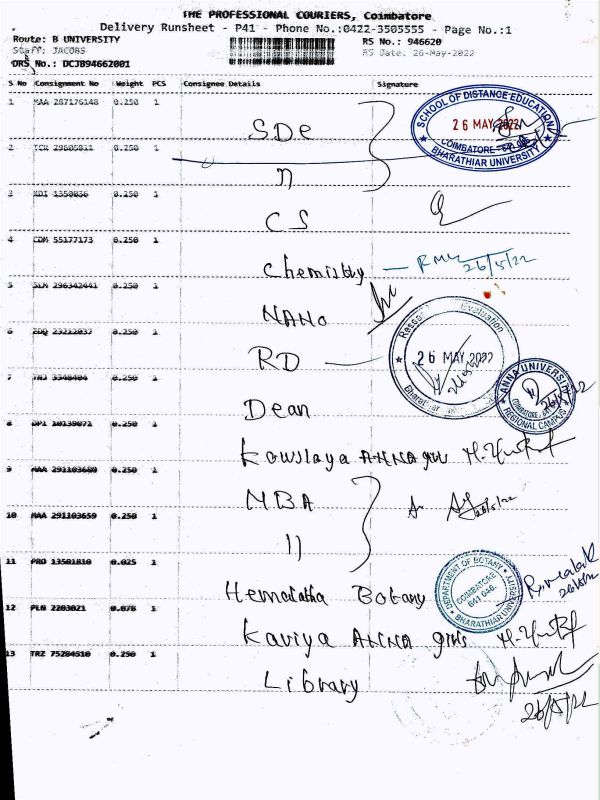 THE PROFESSIONAL COURIERS, Coimbatore
Delivery Runsheet - P41 - Phone No.:0422-3505555 - Page No.:1
Route: B UNIVERSITY
RS No.: 946620
Staff: JACOBS
RS Date: 26-May-2022
DRS No.: DCJB94662001
S No Consignment No Weight PCS Consignee Details Signature
1 MAA 287176148 0.250 1 SDE
SCHOOL OF DISTANCE EDUCATION
26 MAY 2022
COIMBATORE
BHARATHIAR UNIVERSITY
2 0.250 1 "
3 KDI 1350036 0.250 1 CS
4 COM 55177173 0.250 1 Chemistry
26/5/22
5 SLM 296342441 0.250 1 NANO
6 EDQ 23212037 0.250 1 RD
Research Evaluation
26 MAY 2022
7 0.250 1 Dean
ANNA UNIVERSITY
REGIONAL CAMPUS
8 0.250 1 Kowslaya ANNA
9 MAA 291103680 0.250 1 MBA
10 MAA 291103659 0.250 1 "
11 PRO 13501810 0.025 1 Hemalatha Botany
DEPARTMENT OF BOTANY
COIMBATORE
641 046.
BHARATHIAR UNIVERSITY
12 PLN 2203021 0.076 1 Kaviya ANNA girls
13 TRZ 75284510 0.250 1 Library
26/5/22